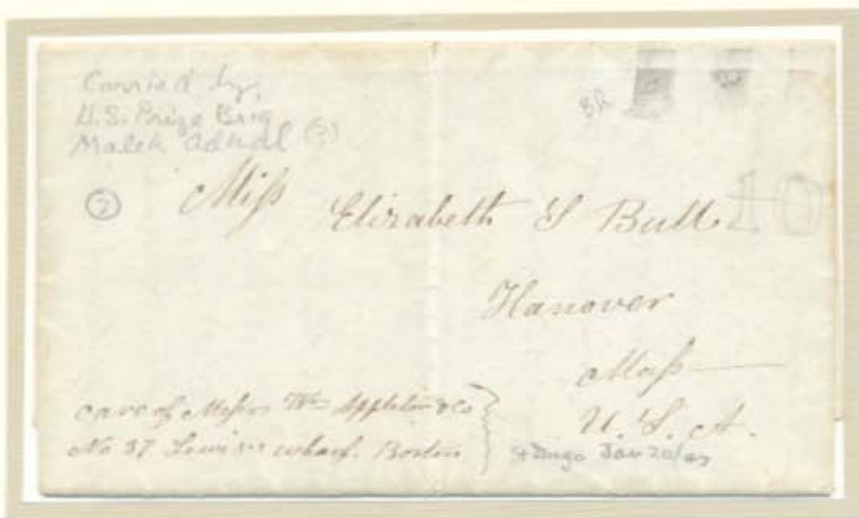 Carried by,
U.S. Prize Brig
Malek Adhal (?)
BR
Miss Elizabeth S Bull
10
Hanover
Mass
U. S. A.
care of Messrs Wm Appleton & Co
No 37 Lewis wharf. Boston
St Diego Jan 20/47